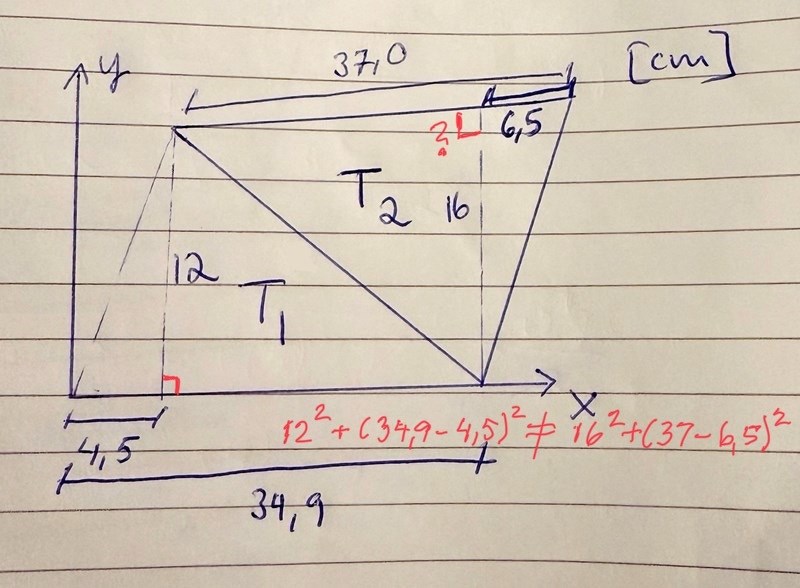 37,0
[cm]
y
? 6,5
T2 16
12
T1
x
12² + (34,9-4,5)² ≠ 16² + (37-6,5)²
4,5
34,9